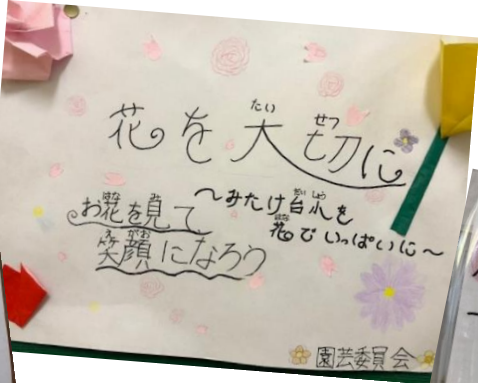 花を大切に
～みたけ台小を
花でいっぱいに～
お花を見て
笑顔になろう
園芸委員会